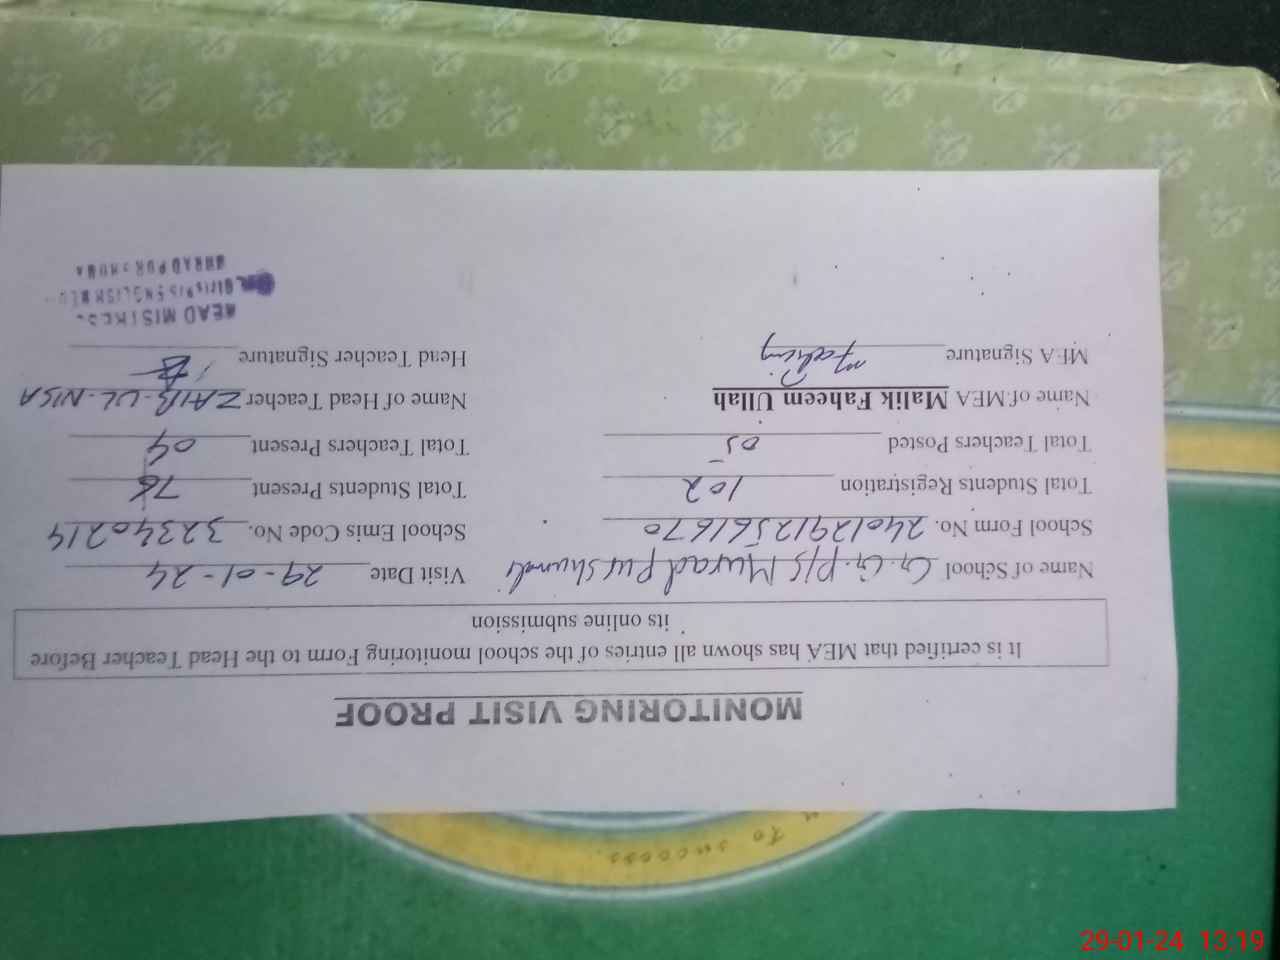 MONITORING VISIT PROOF
It is certified that MEA has shown all entries of the school monitoring Form to the Head Teacher Before
its online submission
Name of School G.G.P/S Murad Pur Shumali Visit Date 29-01-24
School Form No. 24012912561670 School Emis Code No. 32340214
Total Students Registration 102 Total Students Present 76
Total Teachers Posted 05 Total Teachers Present 04
Name of MEA Malik Faheem Ullah Name of Head Teacher ZAIB-UL-NISA
MEA Signature Faheem Head Teacher Signature
HEAD MISTRESS
Girls P/S ENGLISH MED
MURAD PUR SHUMA
To success
29-01-24 13:19